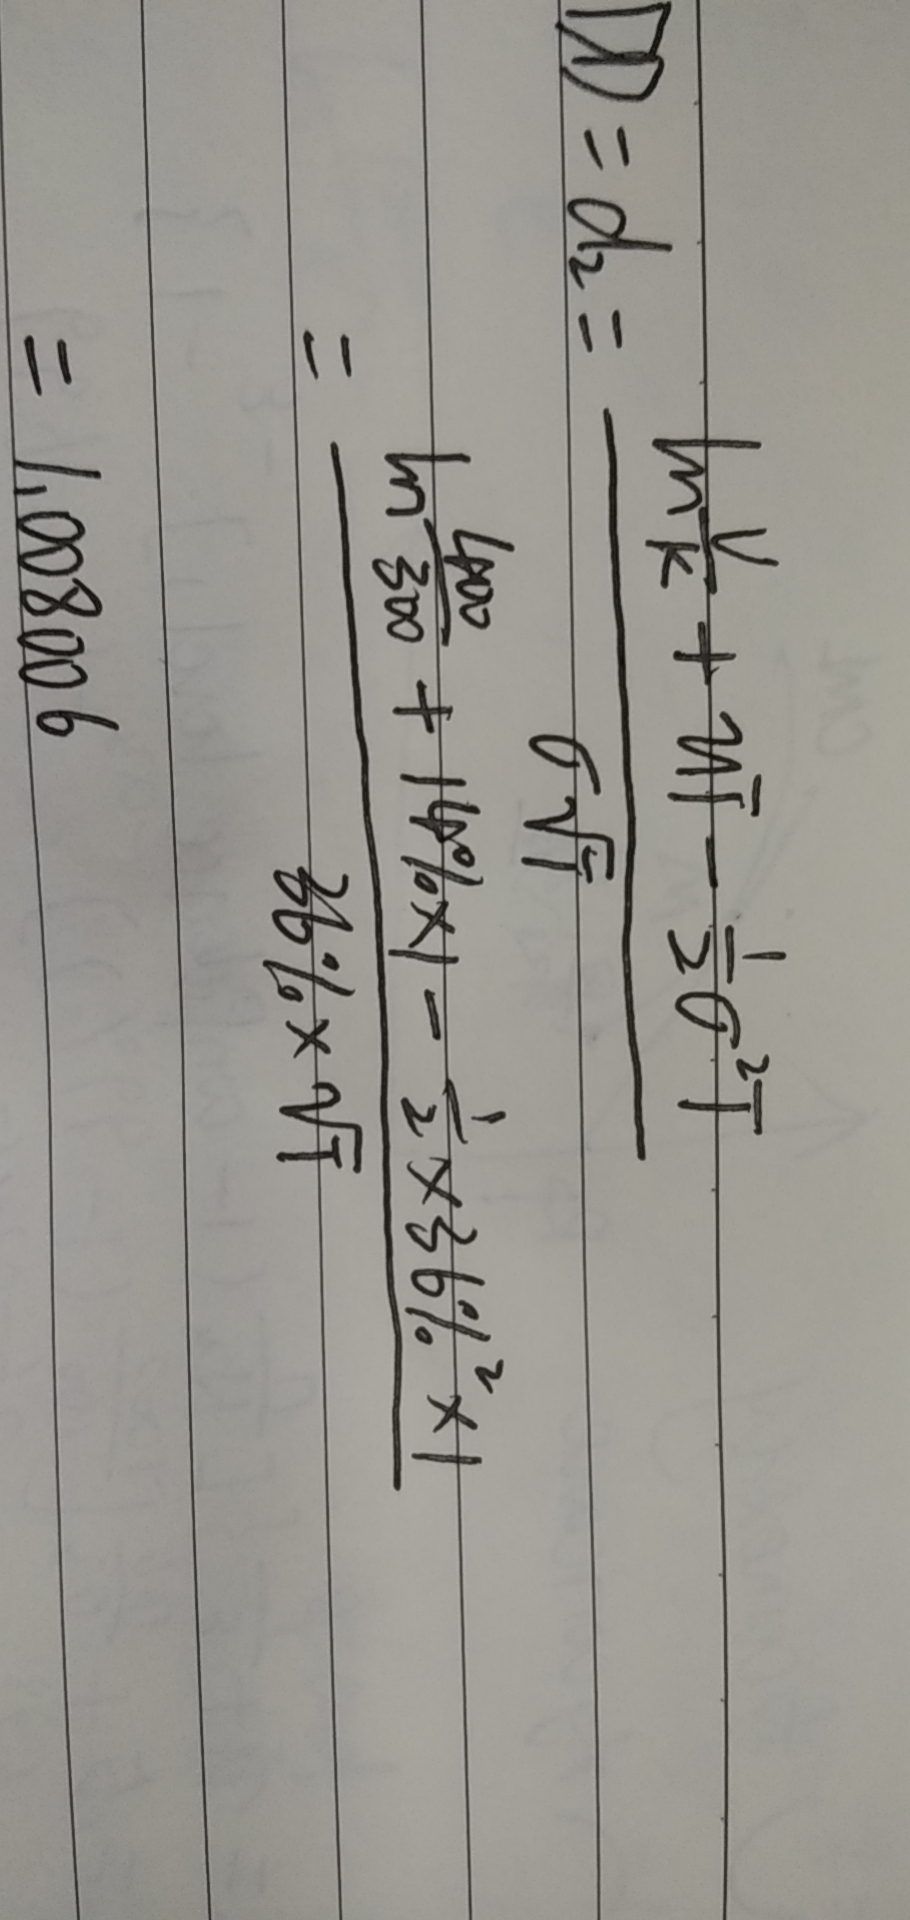 DD = d₂ = (ln V/K + μT - 1/2 σ²T) / (σ√T)
= (ln 400/300 + 14% × 1 - 1/2 × 36%² × 1) / (36% × √1)
= 1.008006